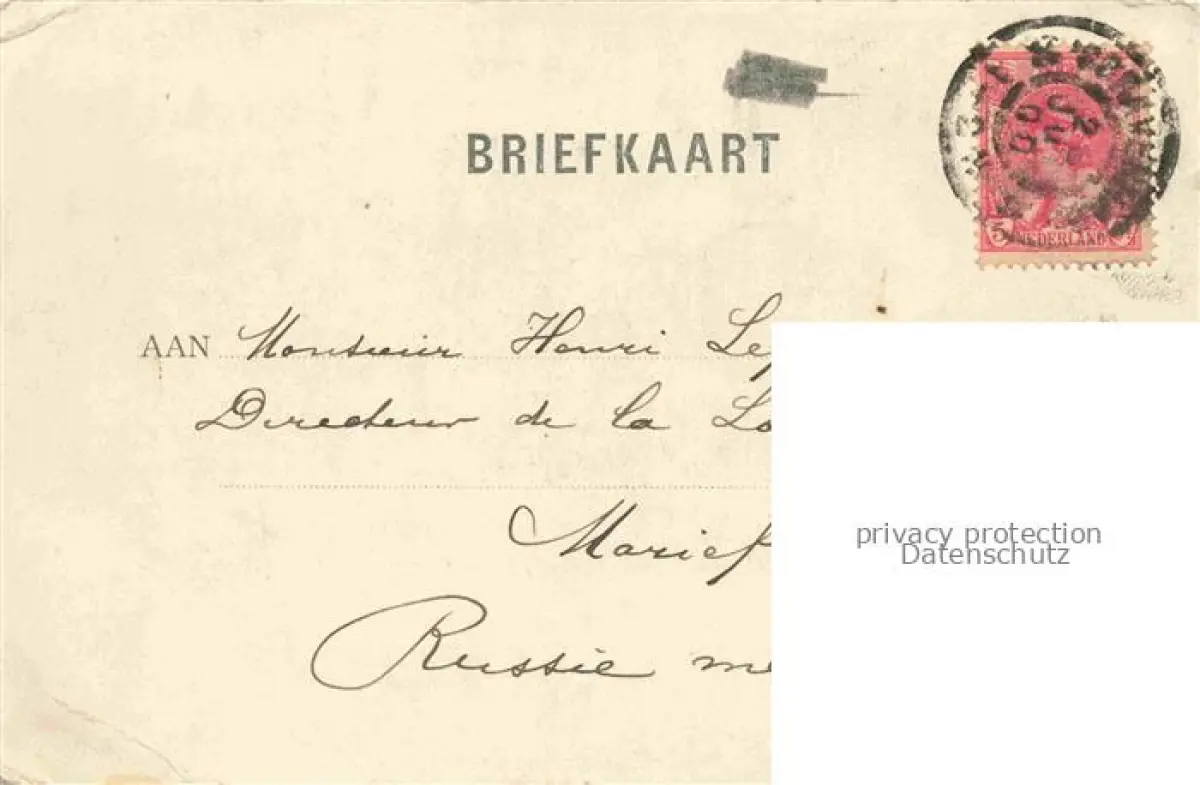 BRIEFKAART
5 NEDERLAND
2 JUL 00
AAN Monsieur Henri Le
Directeur de la Lo
Marief
Russie me
privacy protection
Datenschutz